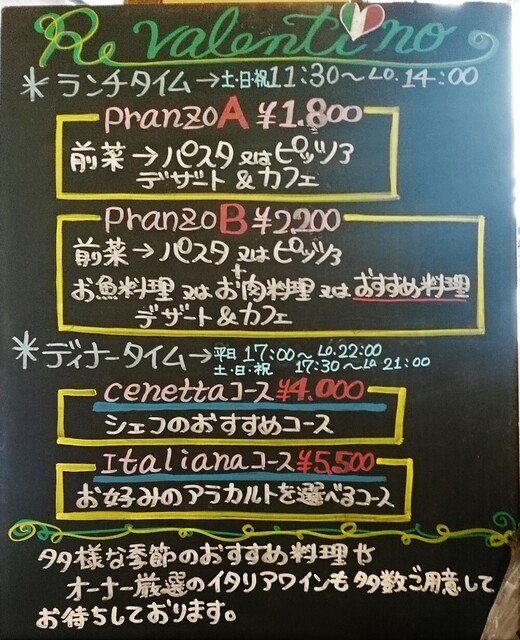 Re Valentino
＊ランチタイム→土・日・祝11:30～Lo.14:00
pranzoA ¥1.800
前菜→パスタ又はピッツァ
デザート&カフェ
pranzoB ¥2.200
前菜→パスタ又はピッツァ
+
お魚料理又はお肉料理又はおすすめ料理
デザート&カフェ
＊ディナータイム→平日 17:00～Lo.22:00
土・日・祝 17:30～Lo 21:00
cenettaコース ¥4.000
シェフのおすすめコース
Italianaコース ¥5,500
お好みのアラカルトを選べるコース
多様な季節のおすすめ料理や
オーナー厳選のイタリアワインも多数ご用意して
お待ちしております。